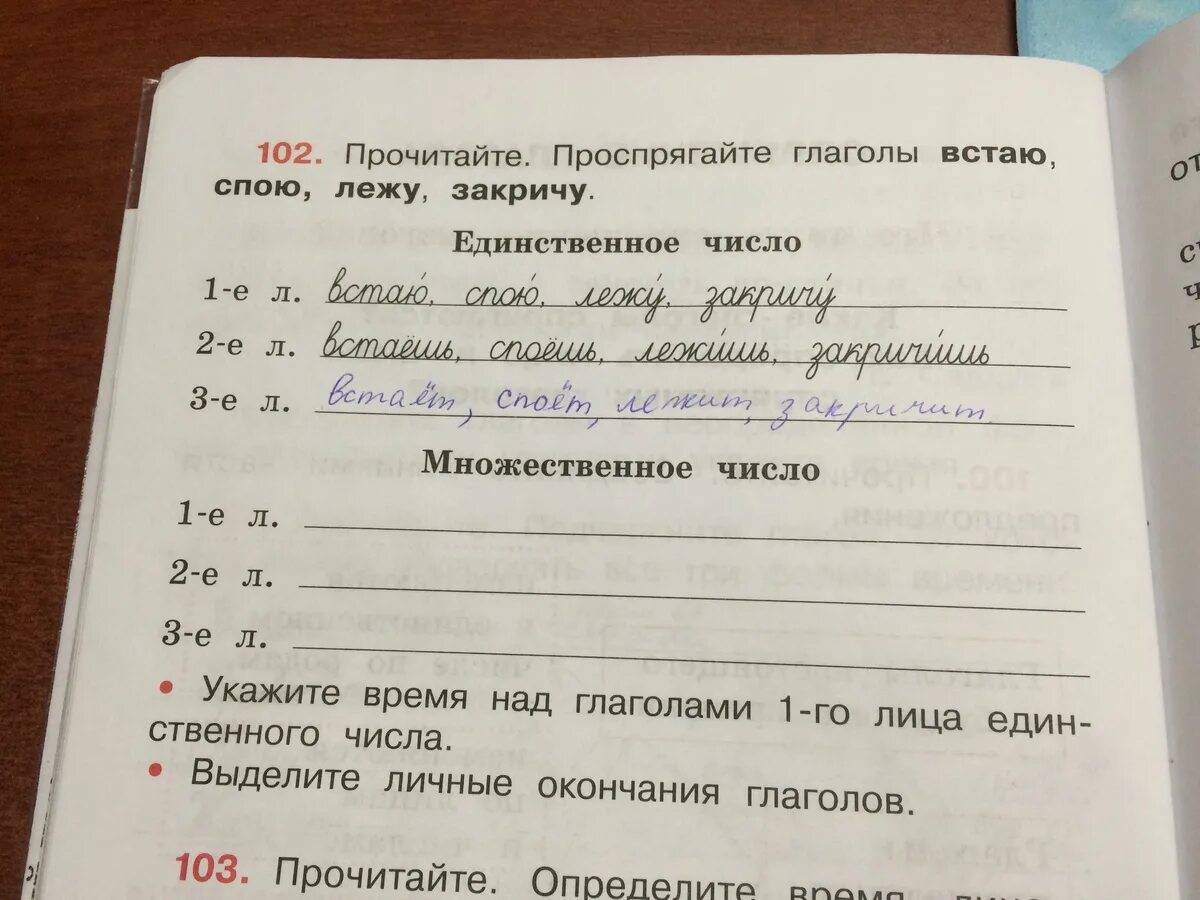 102. Прочитайте. Проспрягайте глаголы встаю,
спою, лежу, закричу.
Единственное число
1-е л. встаю́, спою́, лежу́, закричу́
2-е л. встаёшь, споёшь, лежи́шь, закричи́шь
3-е л. встаёт, споёт, лежит, закричит.
Множественное число
1-е л.
2-е л.
3-е л.
• Укажите время над глаголами 1-го лица един-
ственного числа.
• Выделите личные окончания глаголов.
103. Прочитайте. Определите время